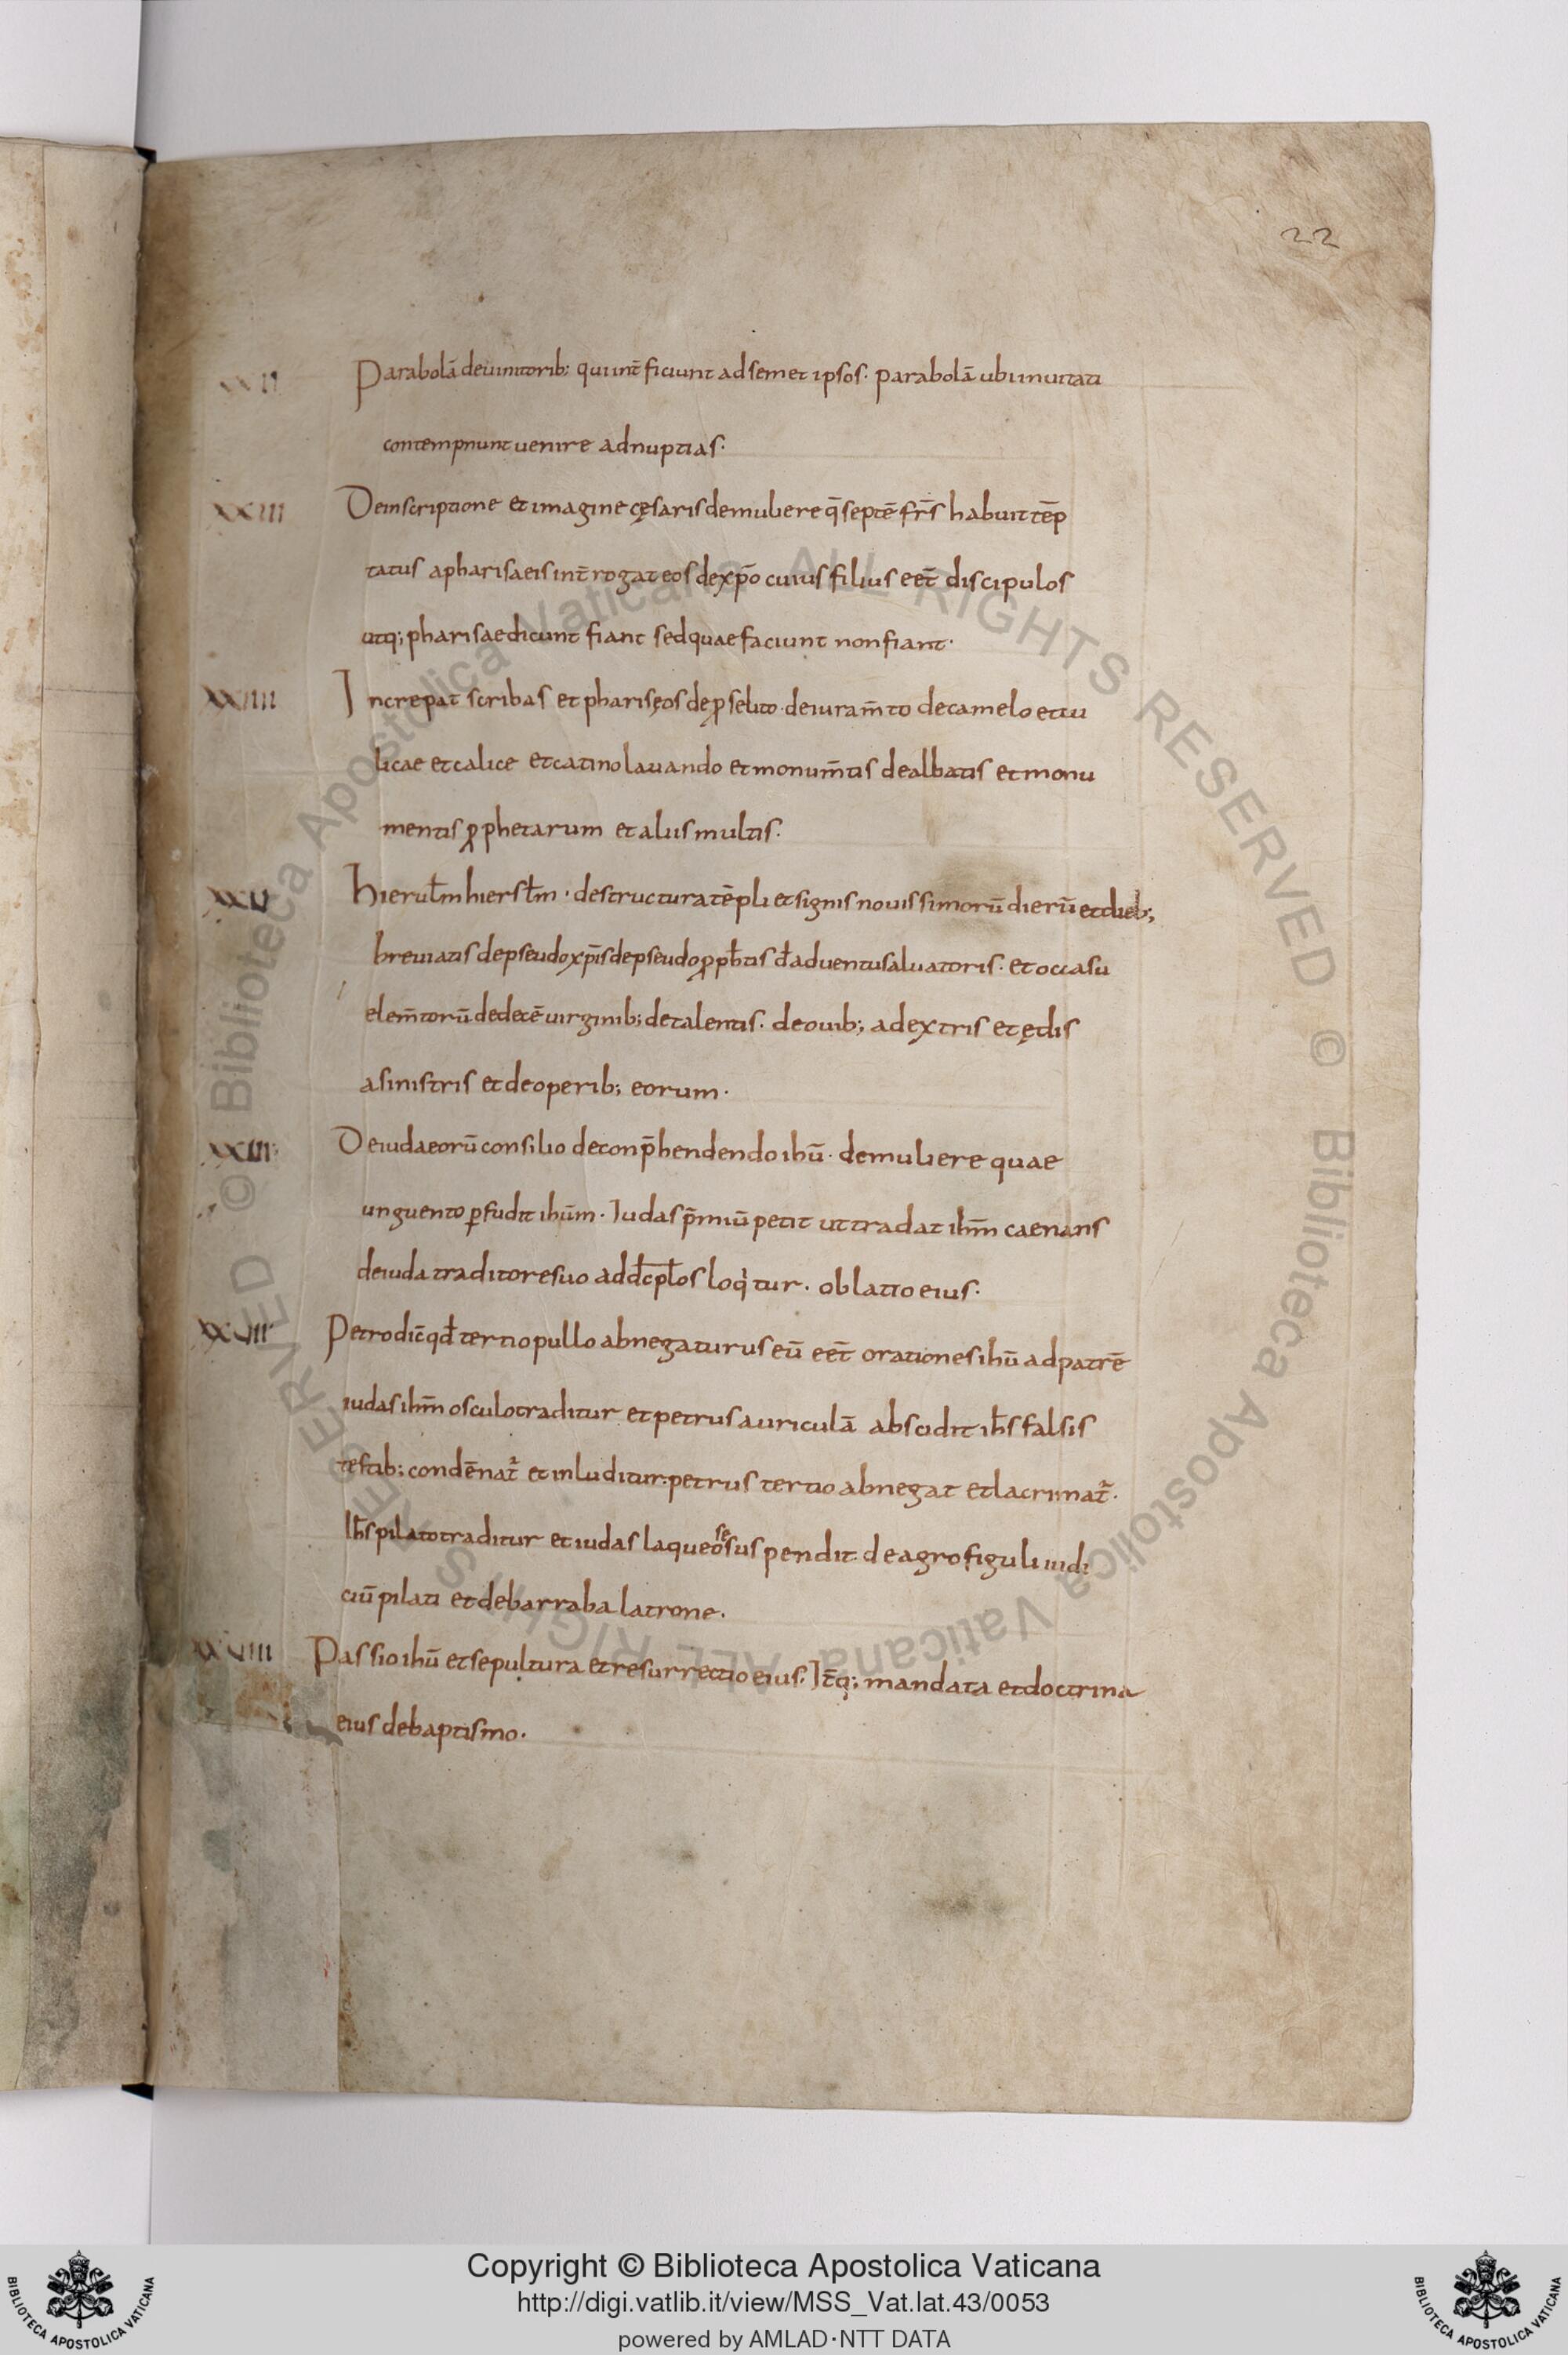 22
XXII Parabolā deuinitorib; qui int̄ficiunt ad semet ipsos· parabolā ubi inuitati
contempnunt uenire ad nuptias·
XXIII De inscriptione et imagine cęsaris de muliere q̄ septē fr̄s habuit tēp
tatus a pharisaeis int̄rogat eos de xp̄o cuius filius eēt discipulos
utq; pharisaei dicunt fiant sed quae faciunt non fiant·
XXIIII Increpat scribas et pharisęos de ꝓselito· de iuram̄to de camelo et cu
licae et calice et catino lauando et monum̄tis dealbatis et monu
mentis ꝓphetarum et aliis multis·
XXV Hierul̄m hiersl̄m · destructura tēpli et signis nouissimorū dierū et dieb;
breuiatis de pseudoxp̄is de pseudoꝓph̄tis d̄ aduentu saluatoris· et occasu
elem̄torū de decē uirginib; de talentis· de ouib; a dextris et ędis
a sinistris et de operib; eorum·
XXVI De iudaeorū consilio de conp̄hendendo ihū· de muliere quae
unguento ꝑfudit ihūm· Iudas p̄miū petit ut tradat ihm̄ caenans
de iuda traditore suo ad dc̄pl̄os loqͥtur· oblatio eius·
XXVII Petro dic̄ qd̄ tertio pullo abnegaturus eū eēt orationes ihū ad patrē
iudas ihm̄ osculo traditur et petrus auriculā abscidit ih̄s falsis
testib; condēnat᷑ et inluditur· petrus tertio abnegat et lacrimat᷑·
Ih̄s pilato traditur et iudas laqueo se suspendit de agro figuli iudi
ciū pilati et de barraba latrone·
XXVIII Passio ihū et sepultura et resurrectio eius· It̄q; mandata et doctrina
eius de baptismo·
© Biblioteca Apostolica Vaticana ALL RIGHTS RESERVED © Biblioteca Apostolica Vaticana ALL RIGHTS RESERVED
Copyright © Biblioteca Apostolica Vaticana
http://digi.vatlib.it/view/MSS_Vat.lat.43/0053
powered by AMLAD·NTT DATA
BIBLIOTECA APOSTOLICA VATICANA
BIBLIOTECA APOSTOLICA VATICANA